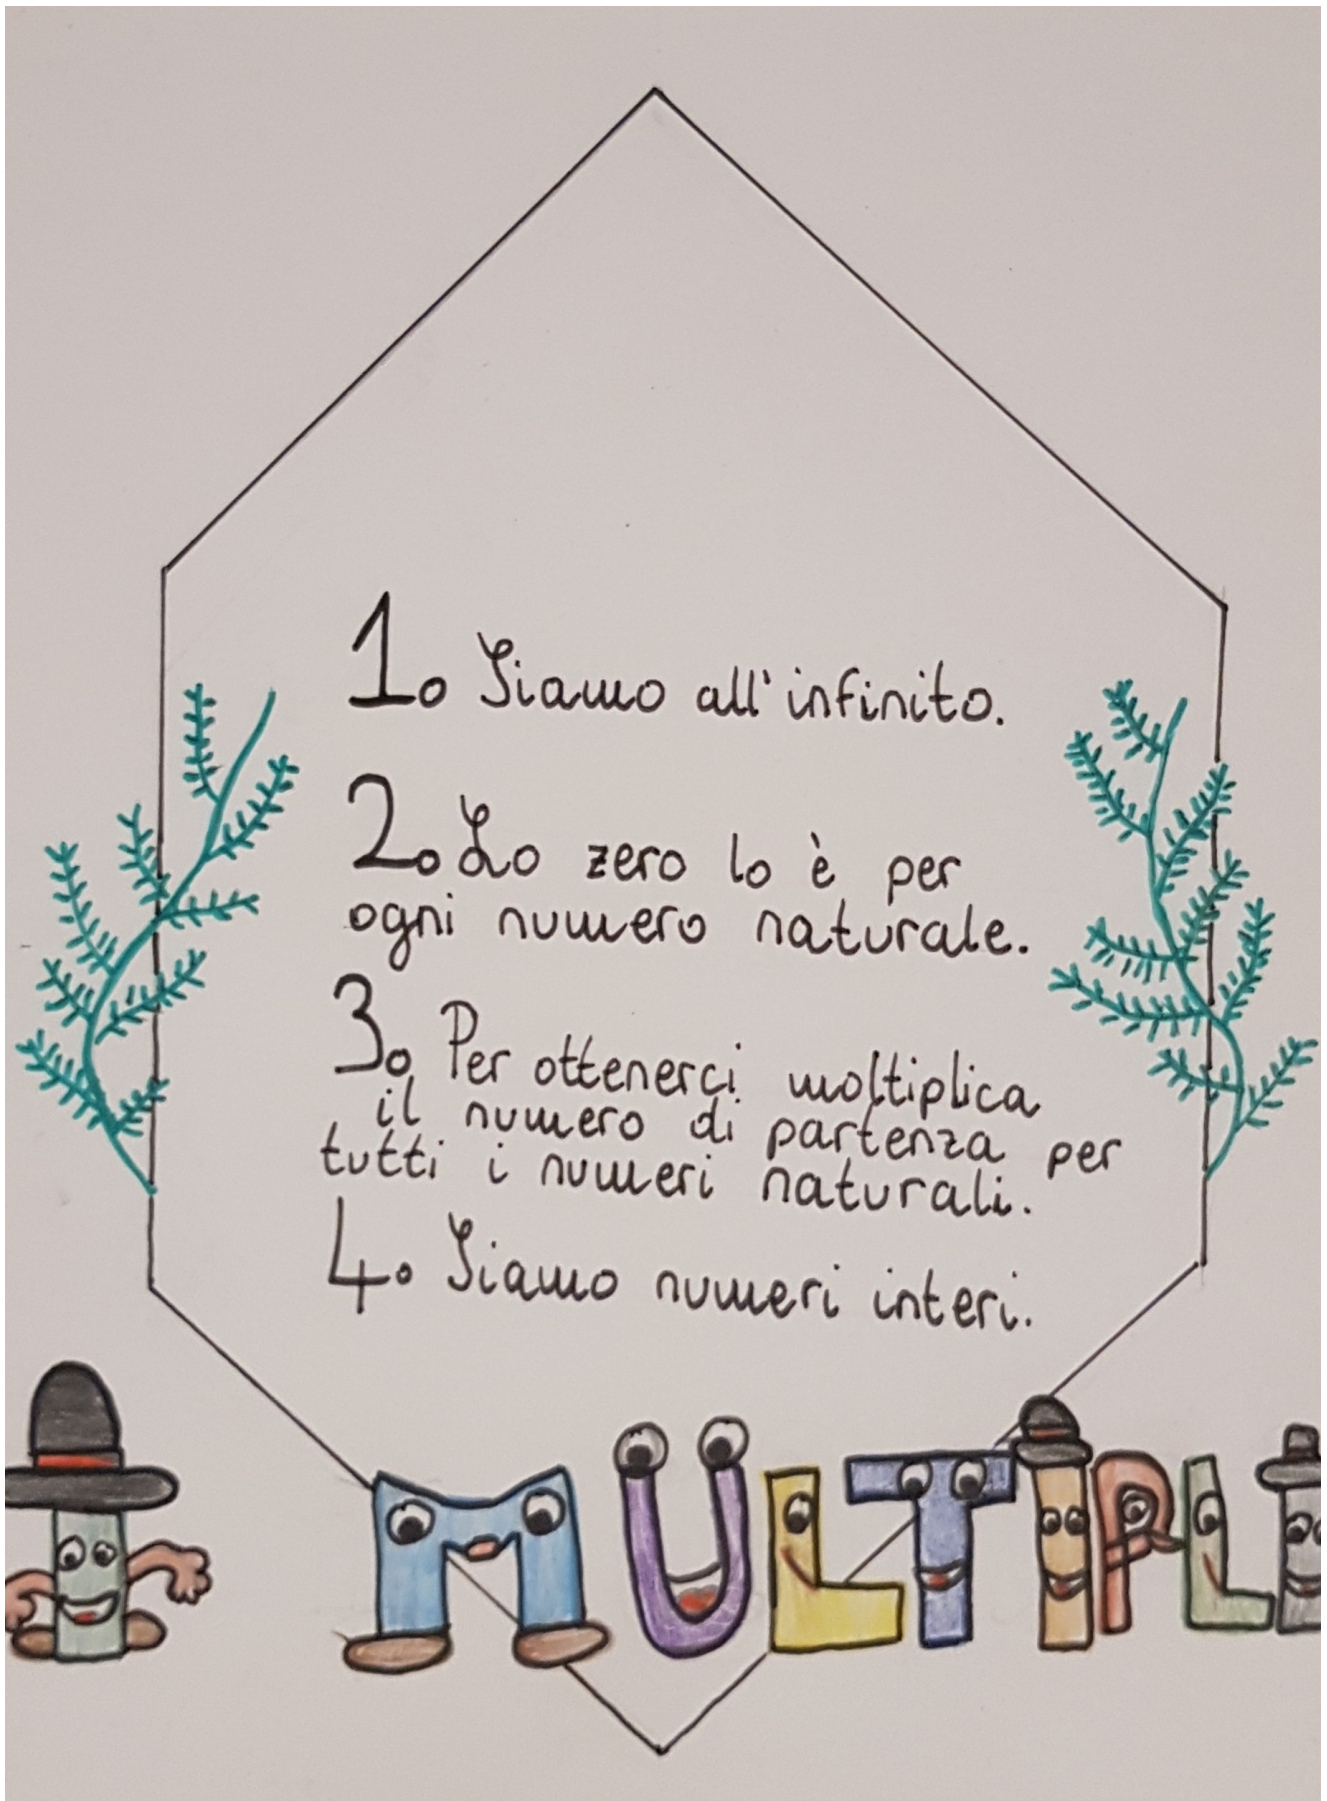 1. Siamo all'infinito.
2. Lo zero lo è per
ogni numero naturale.
3. Per ottenerci moltiplica
il numero di partenza per
tutti i numeri naturali.
4. Siamo numeri interi.
I MULTIPLI